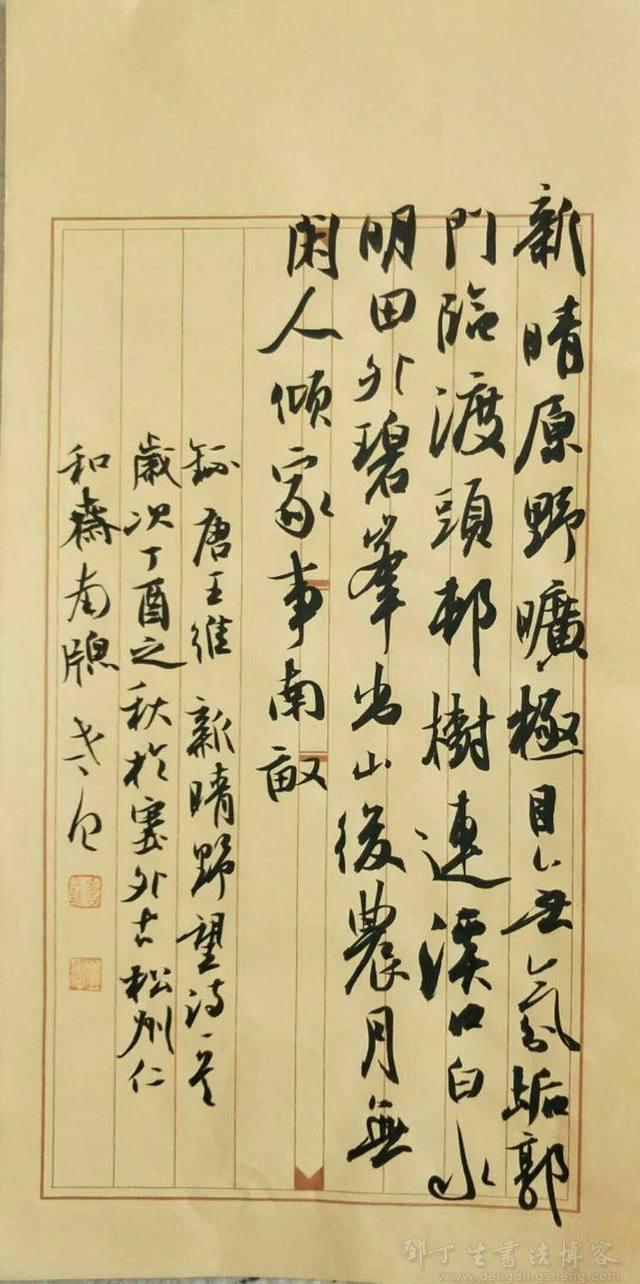 新晴原野曠極目無氛垢郭
門臨渡頭邨樹連溪口白水
明田外碧峯出山後農月無
閑人傾家事南畝
錄唐王維新晴野望詩一首
歲次丁酉之秋於塞外古松州仁
和齋南牕
鄧丁生書法博客
www.dengdingsheng.com